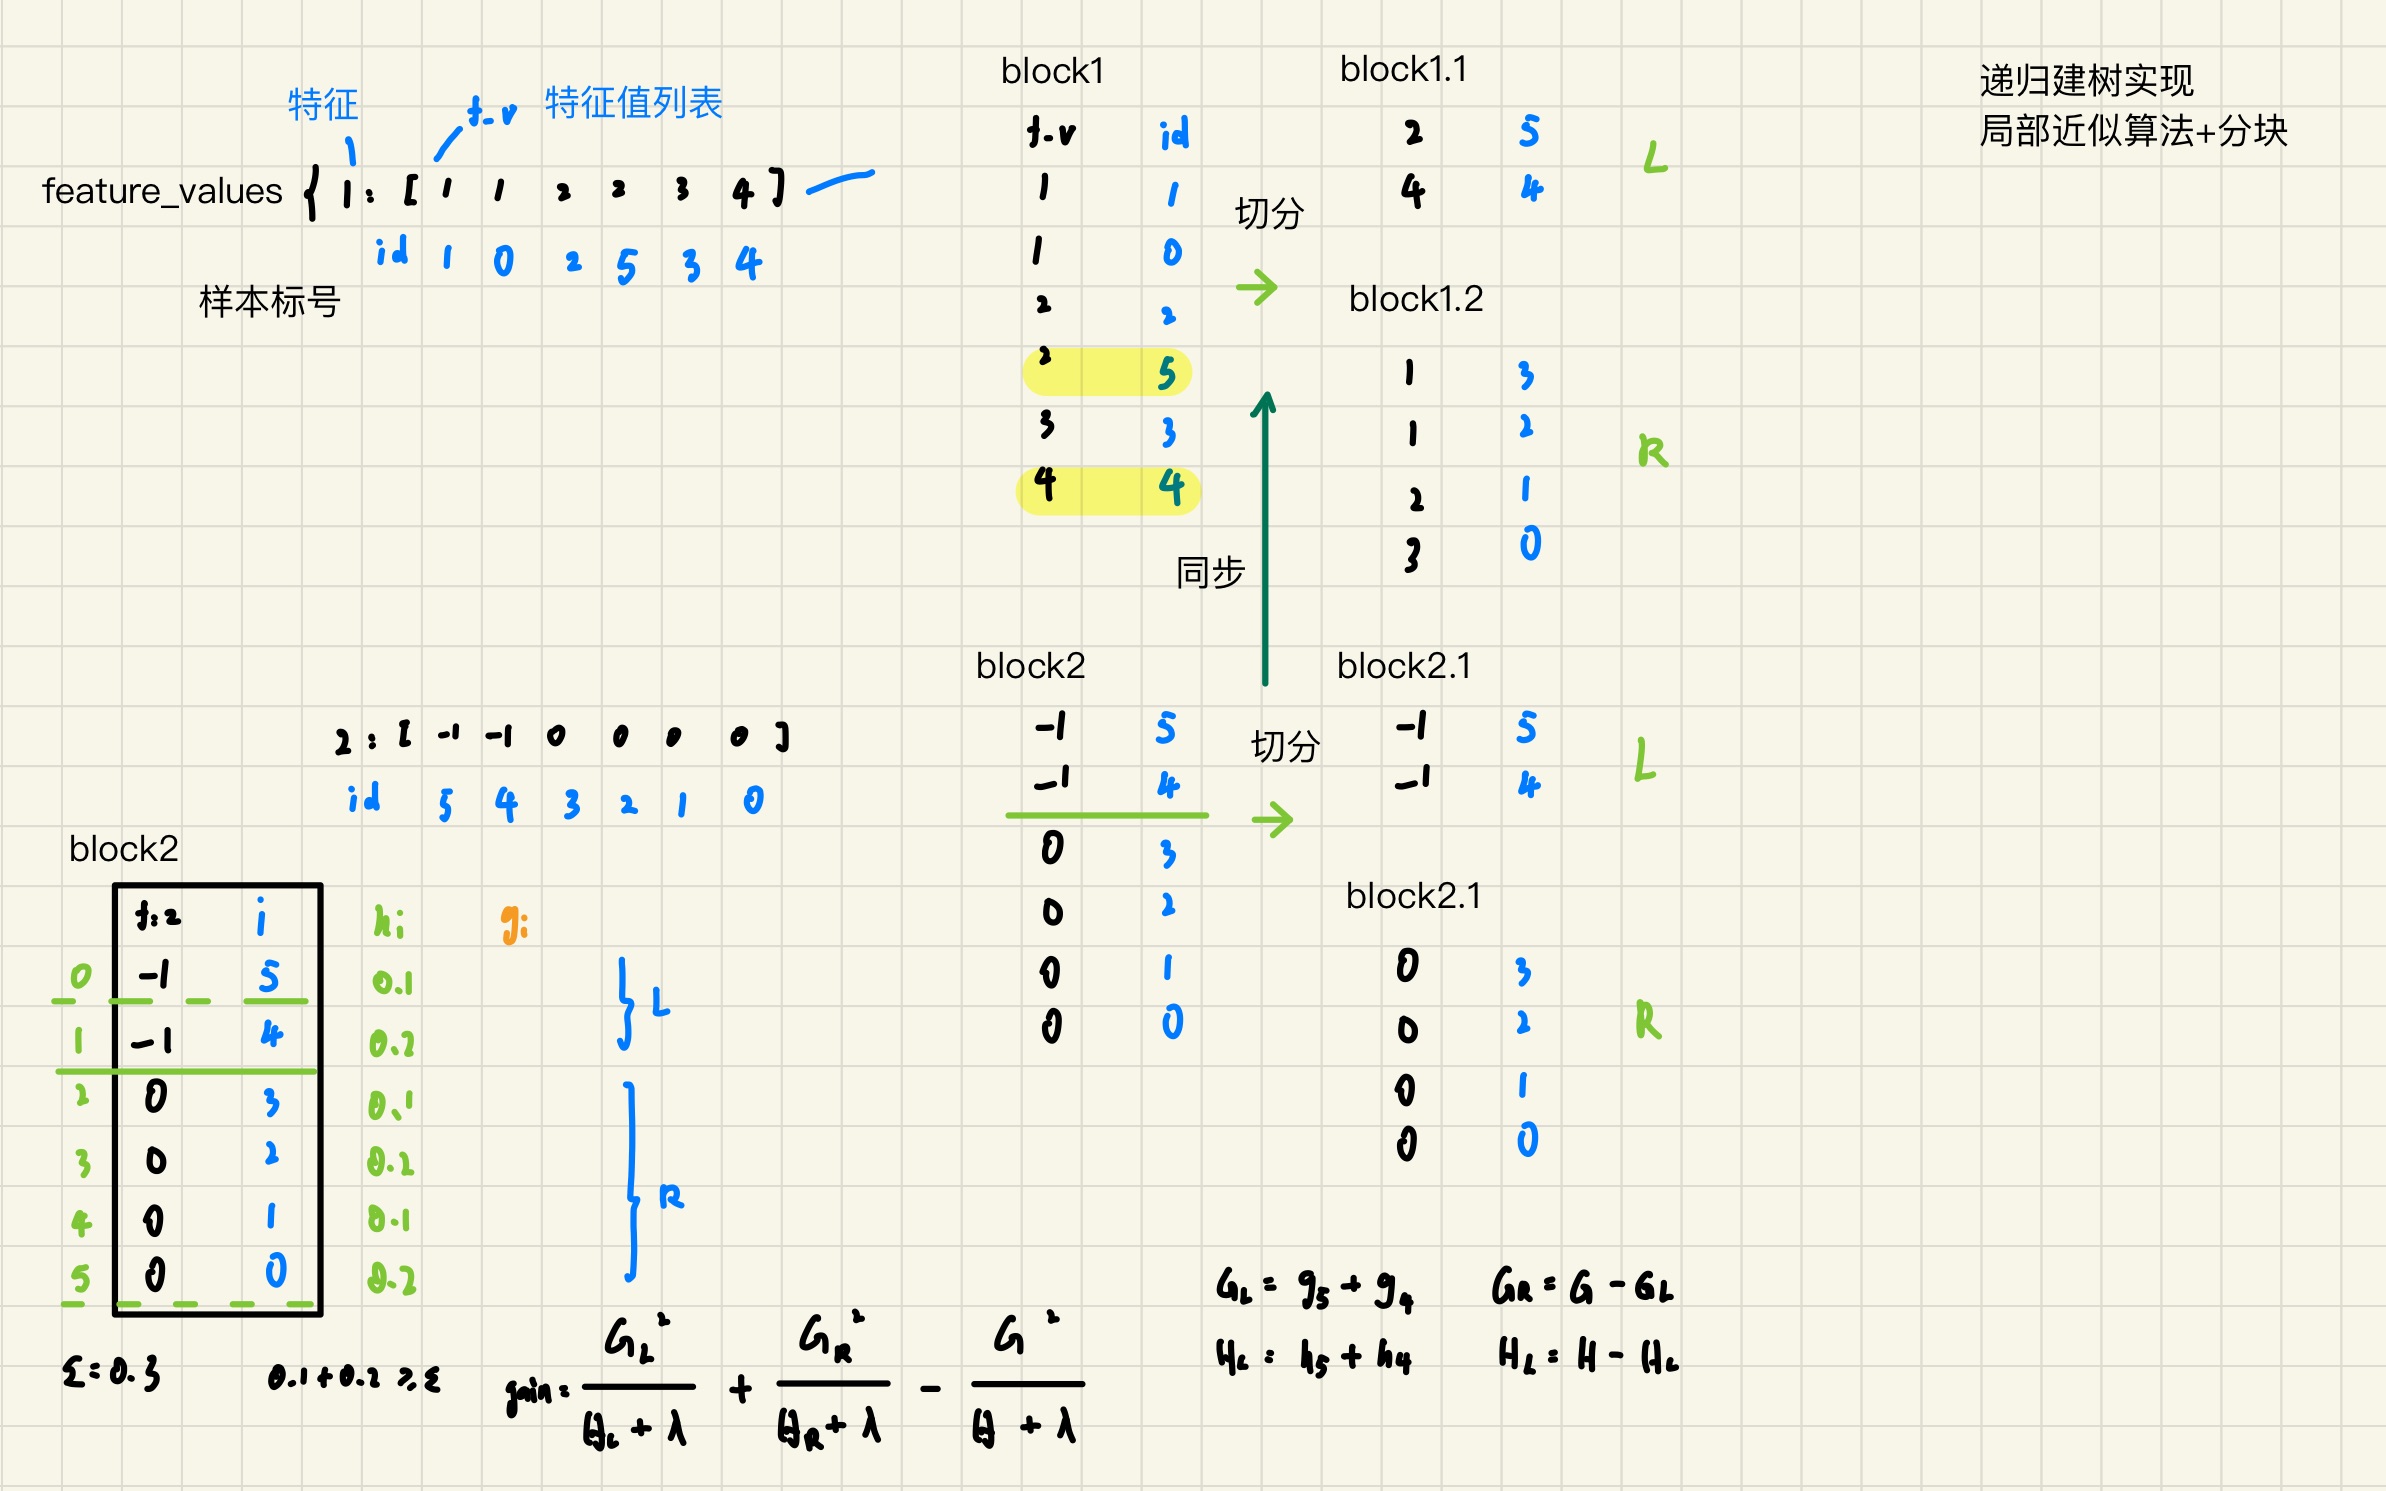 特征
f-v 特征值列表
feature_values { 1: [ 1 1 2 2 3 4 ]
id 1 0 2 5 3 4
样本标号
2: [ -1 -1 0 0 0 0 ]
id 5 4 3 2 1 0
block2
f:2 i hi gi
0 -1 5 0.1
1 -1 4 0.2
2 0 3 0.1
3 0 2 0.2
4 0 1 0.1
5 0 0 0.2
L
R
Σ=0.3 0.1+0.2 ≥ε
gain= GL² / (HL + λ) + GR² / (HR + λ) - G² / (H + λ)
block1
f-v id
1 1
1 0
2 2
2 5
3 3
4 4
切分
→
同步
block1.1
2 5
4 4
L
block1.2
1 3
1 2
2 1
3 0
R
block2
-1 5
-1 4
0 3
0 2
0 1
0 0
切分
→
block2.1
-1 5
-1 4
L
block2.1
0 3
0 2
0 1
0 0
R
GL = g5 + g4 GR = G - GL
HL = h5 + h4 HL = H - HL
递归建树实现
局部近似算法+分块